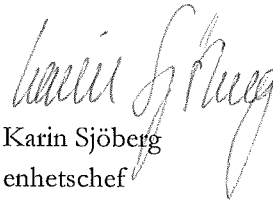 Karin Sjöberg
Karin Sjöberg
enhetschef